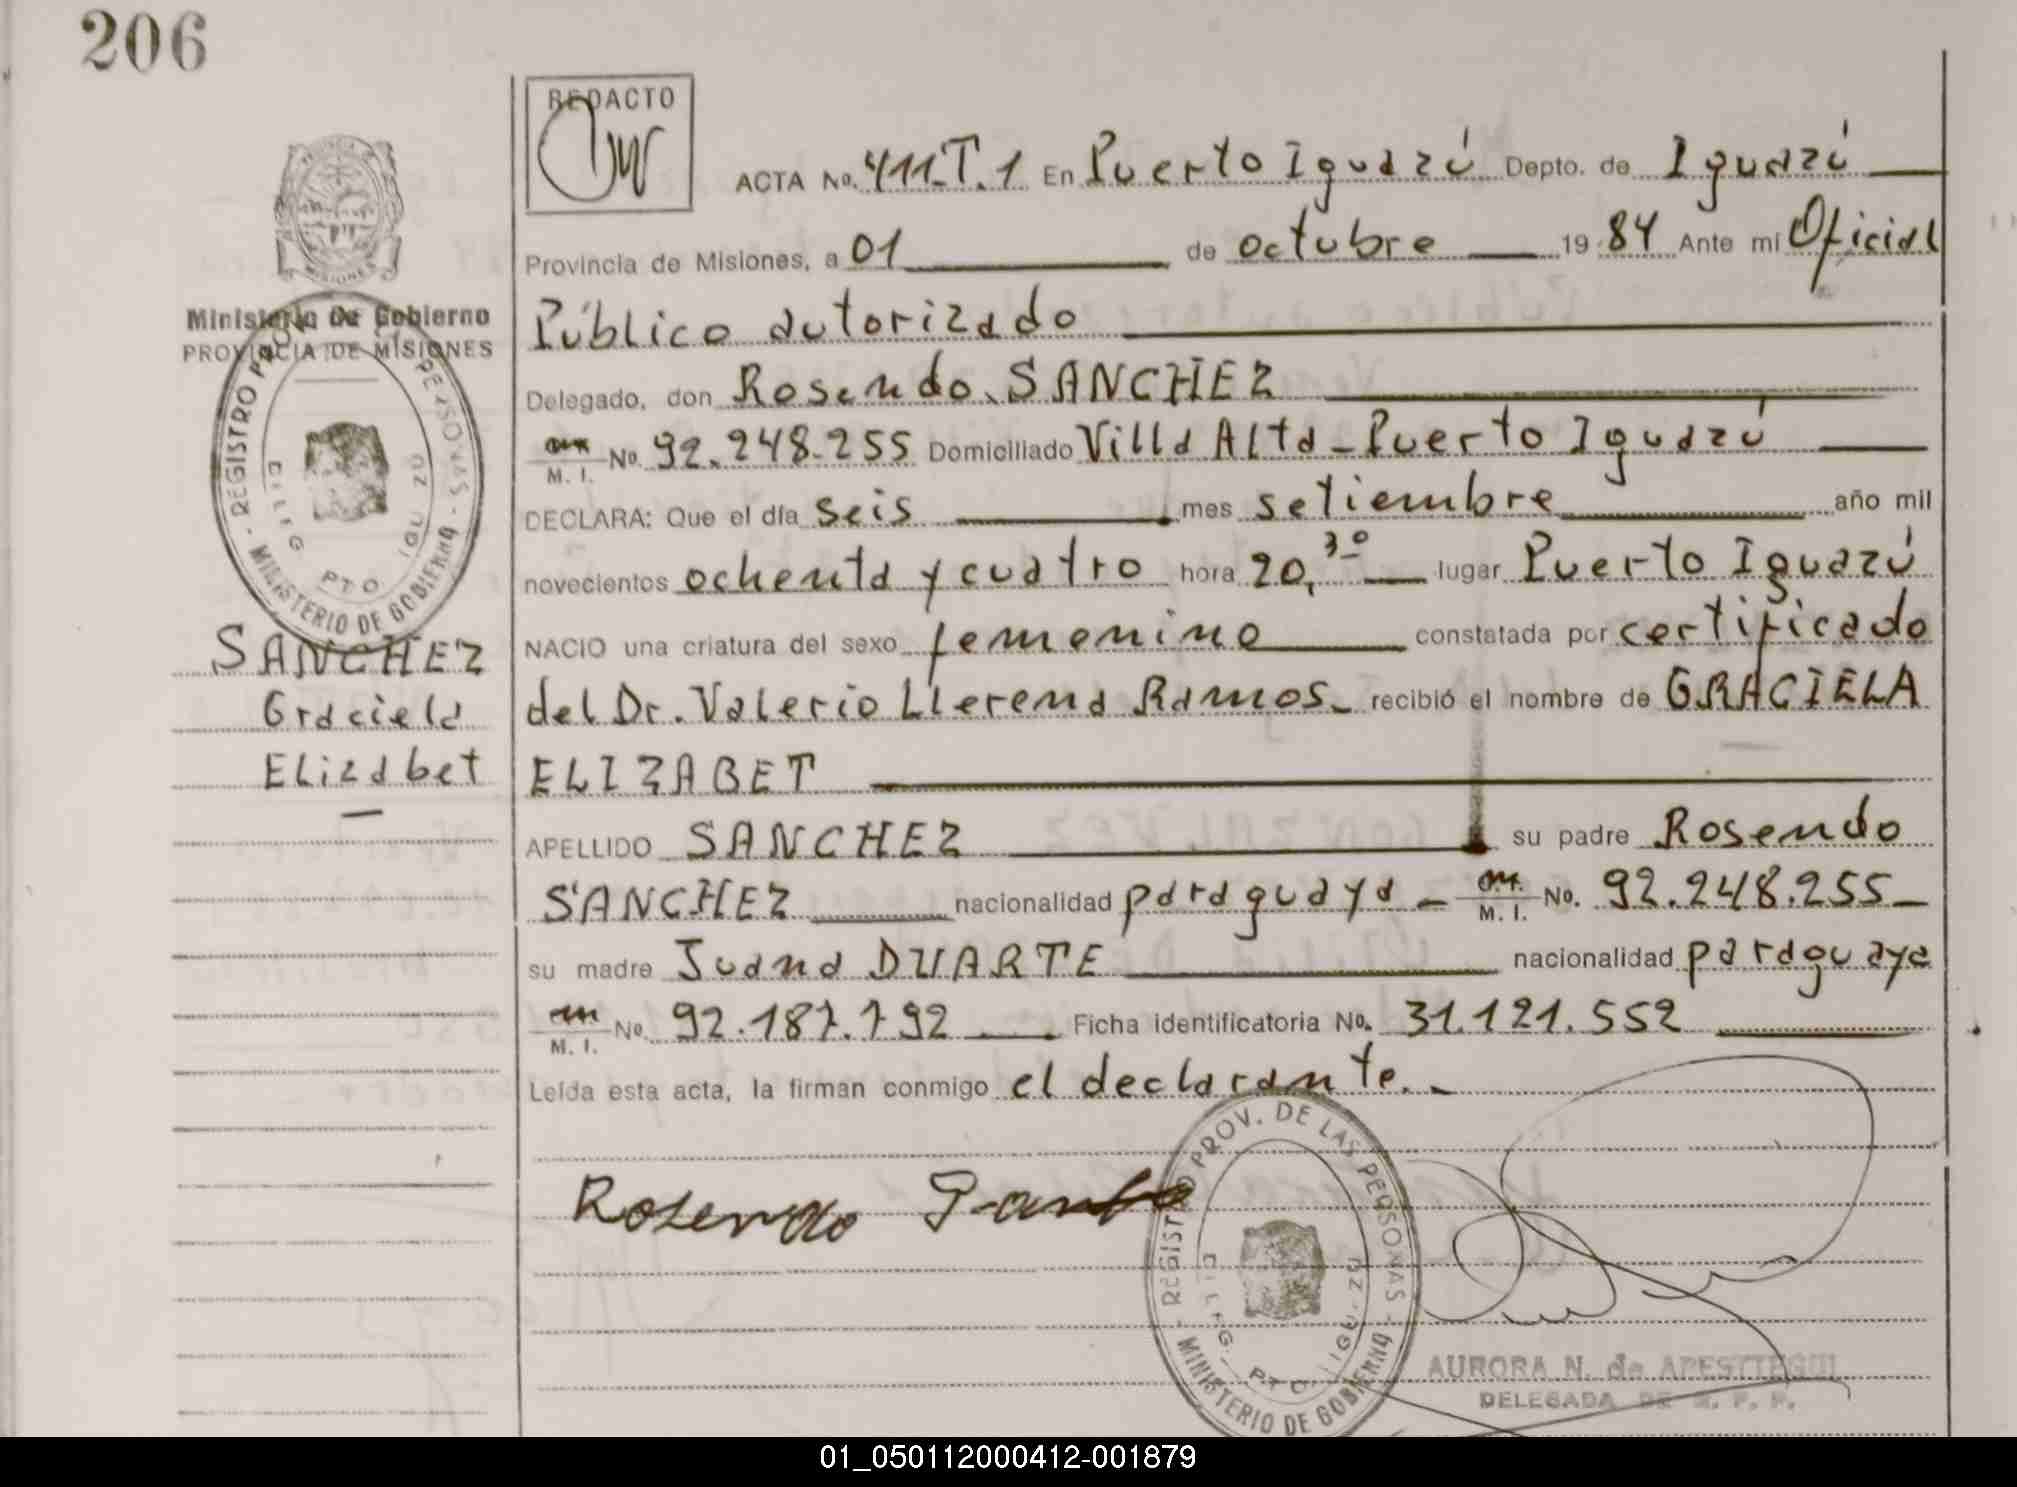 206
REDACTO
ACTA No. 411-T.1 En Puerto Iguazú Depto. de Iguazú
Provincia de Misiones, a 01 de octubre 1984 Ante mí Oficial
Público autorizado
Delegado, don Rosendo SANCHEZ
M. I. No. 92.248.255 Domiciliado Villa Alta - Puerto Iguazú
DECLARA: Que el día seis mes setiembre año mil
novecientos ochenta y cuatro hora 20,30 lugar Puerto Iguazú
NACIO una criatura del sexo femenino constatada por certificado
del Dr. Valerio Llerena Ramos - recibió el nombre de GRACIELA
ELIZABET
APELLIDO SANCHEZ su padre Rosendo
SANCHEZ nacionalidad paraguaya - M. I. No. 92.248.255 -
su madre Juana DUARTE nacionalidad paraguaya
M. I. No. 92.187.792 Ficha identificatoria No. 31.121.552
Leída esta acta, la firman conmigo el declarante. -
Rosendo
REGISTRO PROV. DE LAS PERSONAS - MINISTERIO DE GOBIERNO
DELEG. PTO. IGUAZU
AURORA N. de APESTEGUI
DELEGADA DE R. P. P.
PROVINCIA DE MISIONES
Ministerio De Gobierno
PROVINCIA DE MISIONES
REGISTRO PROV. DE LAS PERSONAS - MINISTERIO DE GOBIERNO
DELEG. PTO. IGUAZU
SANCHEZ
Graciela
Elizabet
01_050112000412-001879